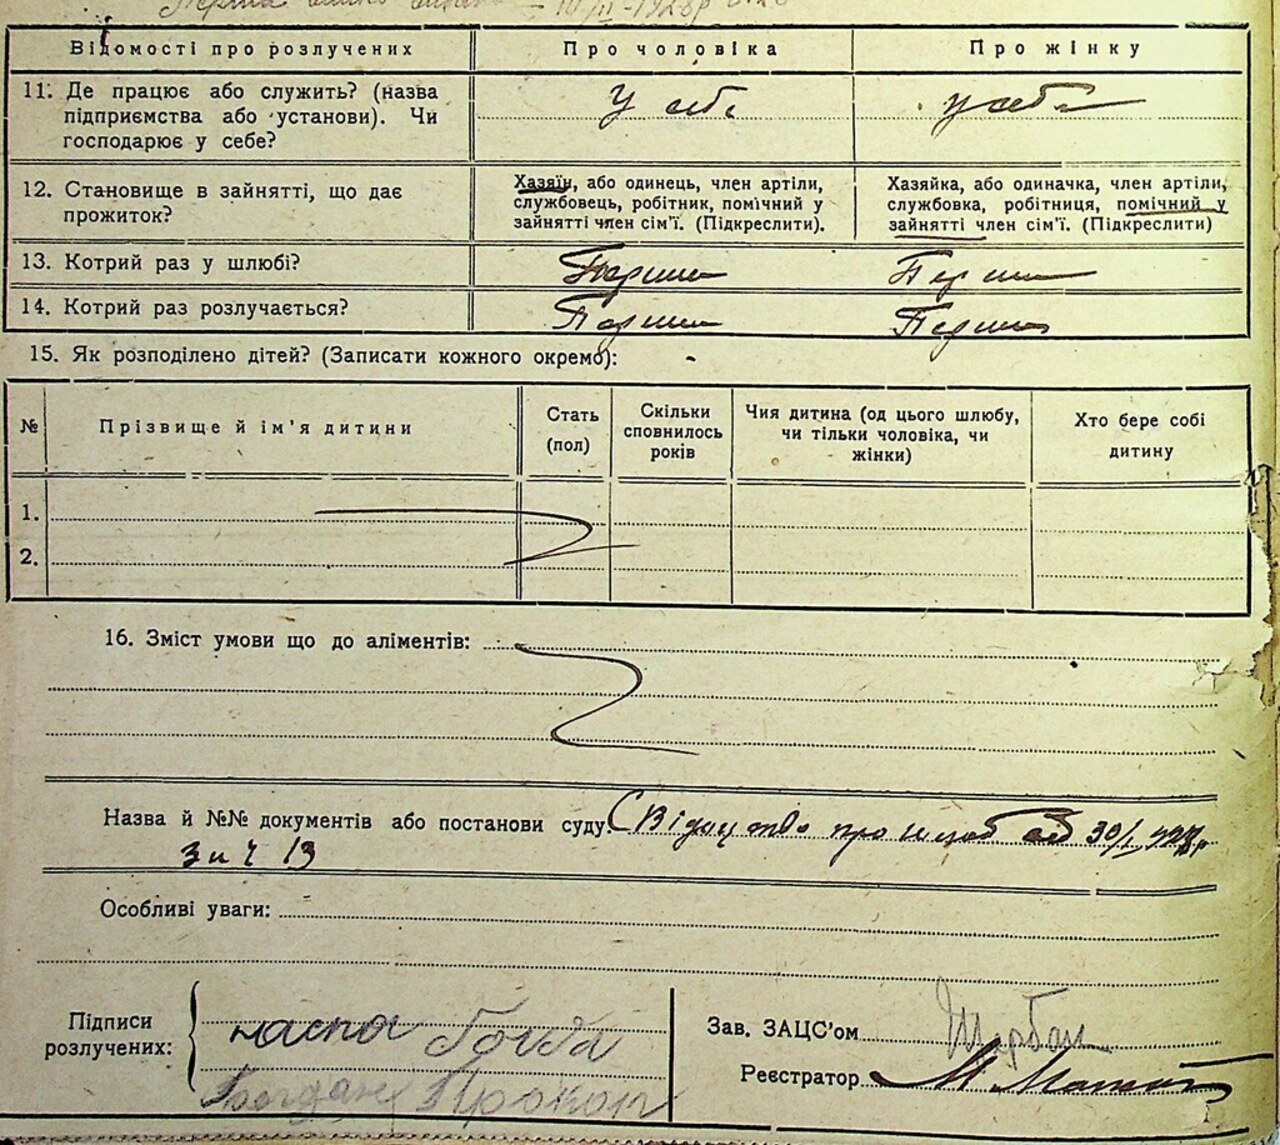 10/II-1928р
Відомості про розлучених
Про чоловіка
Про жінку
11. Де працює або служить? (назва
підприємства або установи). Чи
господарює у себе?
У себе
у себе
12. Становище в зайнятті, що дає
прожиток?
Хазяїн, або одинець, член артіли,
службовець, робітник, помічний у
зайнятті член сім'ї. (Підкреслити).
Хазяйка, або одиначка, член артіли,
службовка, робітниця, помічний у
зайнятті член сім'ї. (Підкреслити)
13. Котрий раз у шлюбі?
Перший
Перший
14. Котрий раз розлучається?
Перший
Перший
15. Як розподілено дітей? (Записати кожного окремо):
№
Прізвище й ім'я дитини
Стать
(пол)
Скільки
сповнилось
років
Чия дитина (од цього шлюбу,
чи тільки чоловіка, чи
жінки)
Хто бере собі
дитину
1.
2.
16. Зміст умови що до аліментів:
Назва й №№ документів або постанови суду. Свідоцтво про шлюб від 30/I
за ч 13
Особливі уваги:
Підписи
розлучених:
Богдан Прокоп
Зав. ЗАЦС'ом Щербан
Реєстратор